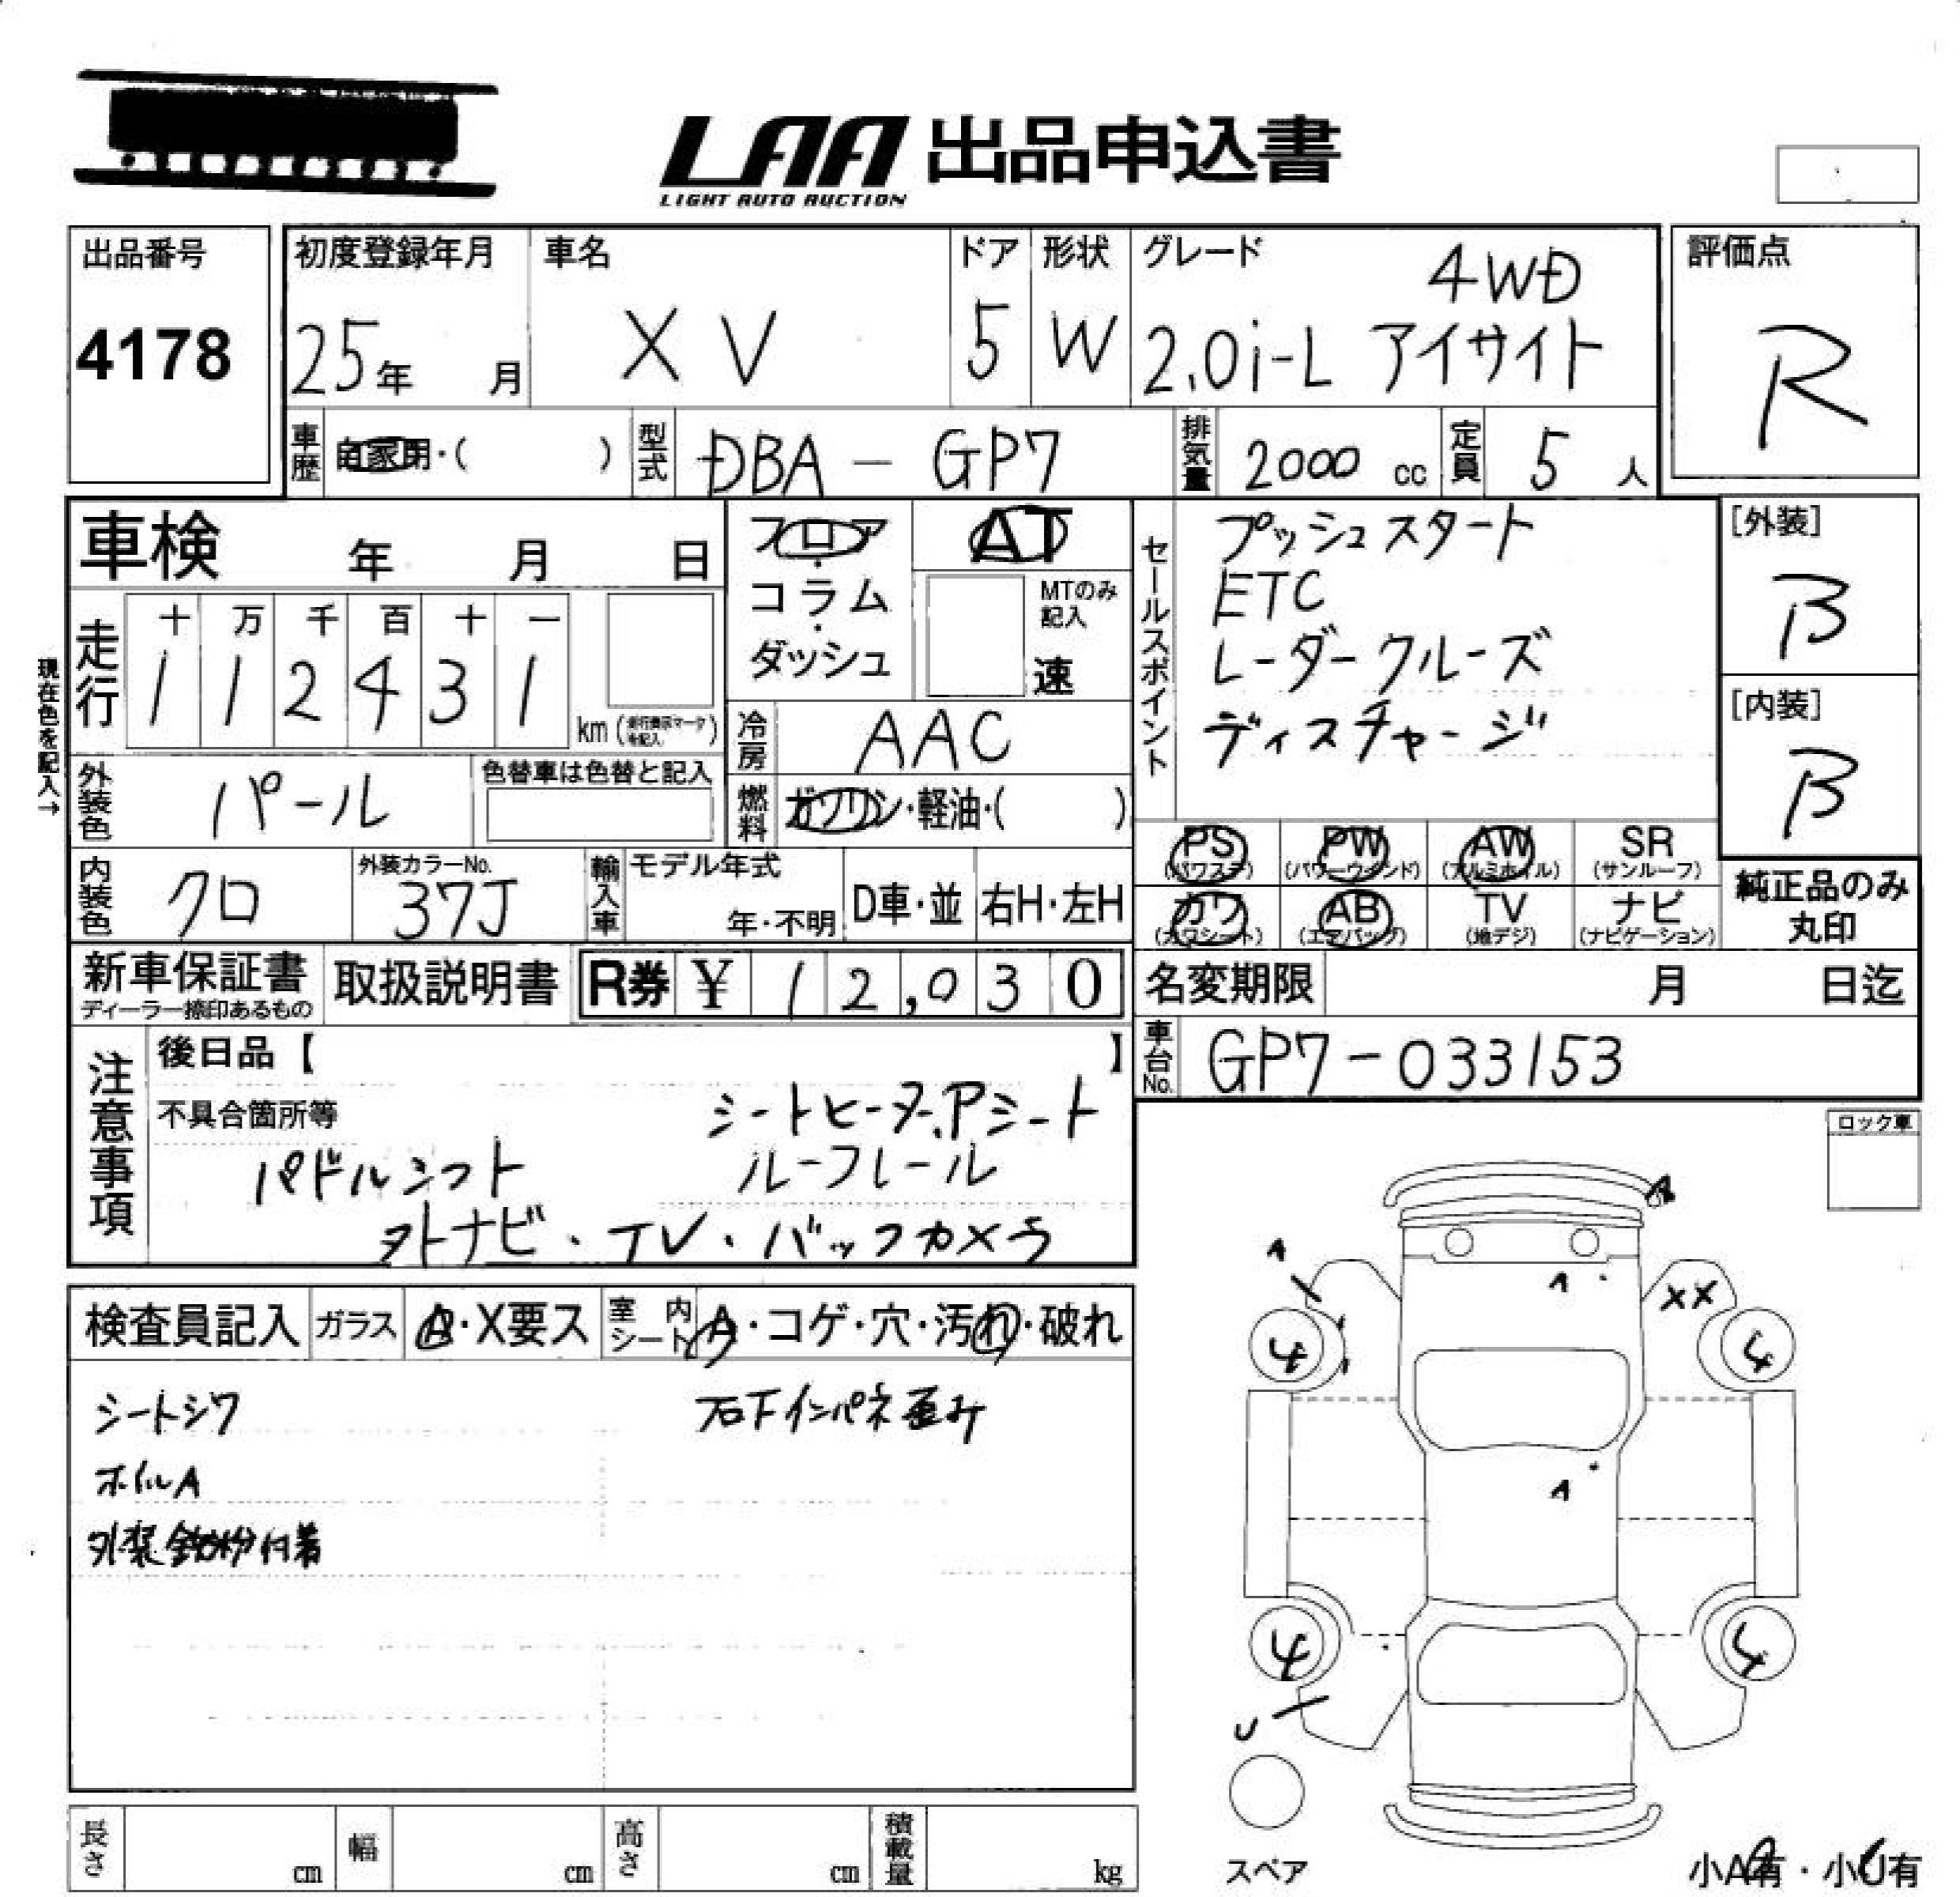 LAA 出品申込書
LIGHT AUTO AUCTION
出品番号
4178
初度登録年月
25年 月
車名
XV
ドア
5
形状
W
グレード
4WD
2.0i-L アイサイト
評価点
R
車歴 自家用・( )
型式 DBA - GP7
排気量 2000 cc
定員 5 人
車検 年 月 日
フロア・コラム・ダッシュ
AT
MTのみ記入
速
セールスポイント
プッシュスタート
ETC
レーダークルーズ
ディスチャージ
[外装]
B
[内装]
B
現在色を記入→
走行
十 万 千 百 十 一
1 1 2 4 3 1 km (走行表示マークを記入)
冷房 AAC
外装色 パール
色替車は色替と記入
燃料 ガソリン・軽油・( )
PS (パワステ)
PW (パワーウインド)
AW (アルミホイル)
SR (サンルーフ)
カワ (カワシート)
AB (エアバッグ)
TV (地デジ)
ナビ (ナビゲーション)
純正品のみ丸印
内装色 クロ
外装カラーNo.
37J
輸入車
モデル年式
年・不明
D車・並
右H・左H
新車保証書
ディーラー捺印あるもの
取扱説明書
R券 ¥ 12,030
名変期限 月 日迄
車台No. GP7-033153
注意事項
後日品【 】
不具合箇所等
シートヒーター.Pシート
パドルシフト ルーフレール
外ナビ・TV・バックカメラ
ロック車
検査員記入
ガラス A・X要ス
室内シート A・コゲ・穴・汚れ・破れ
シートシワ 右下インパネ歪み
ホイルA
外装鉄粉付着
A
A
XX
4
4
A
4
4
U
スペア
長さ cm
幅 cm
高さ cm
積載量 kg
小A有・小U有